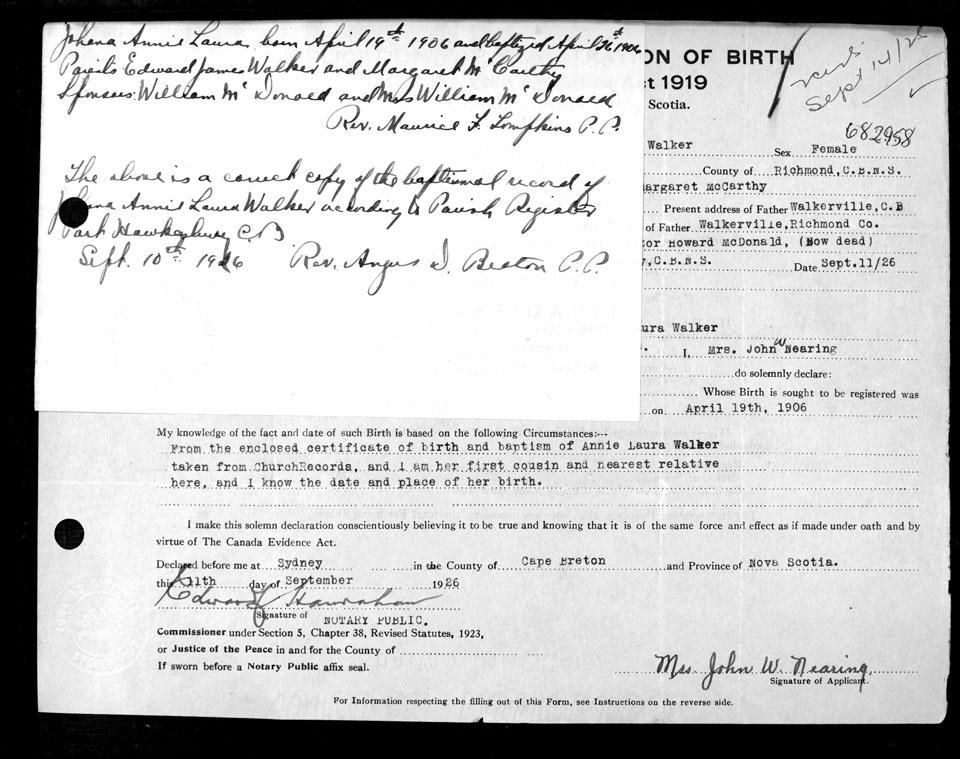 Johana Annie Laura born April 19th 1906 and baptized April 26th 1906
Parents Edward James Walker and Margaret McCarthy
Sponsors: William McDonald and Mrs William McDonald
Rev. Maurice F. Tompkins P.P.
The above is a correct copy of the baptismal record of
Johana Annie Laura Walker according to Parish Register
Port Hawkesbury C.B
Sept. 10th 1926 Rev. Angus J. Beaton P.P.
ON OF BIRTH
ct 1919
Scotia.
Sept 14/26
682958
Walker Sex Female
County of Richmond, C.B.N.S.
argaret McCarthy
Present address of Father Walkerville, C.B
of Father Walkerville, Richmond Co.
tor Howard McDonald, (Now dead)
y, C.B.N.S. Date Sept.11/26
ura Walker
I, Mrs. John W Nearing
do solemnly declare:
Whose Birth is sought to be registered was
on April 19th, 1906
My knowledge of the fact and date of such Birth is based on the following Circumstances:--
From the enclosed certificate of birth and baptism of Annie Laura Walker
taken from ChurchRecords, and I am her first cousin and nearest relative
here, and I know the date and place of her birth.
I make this solemn declaration conscientiously believing it to be true and knowing that it is of the same force and effect as if made under oath and by
virtue of The Canada Evidence Act.
Declared before me at Sydney in the County of Cape Breton and Province of Nova Scotia.
this 11th day of September 1926
Edward Hanrahan
Signature of NOTARY PUBLIC.
Commissioner under Section 5, Chapter 38, Revised Statutes, 1923,
or Justice of the Peace in and for the County of
If sworn before a Notary Public affix seal.
Mrs. John W. Nearing
Signature of Applicant.
For Information respecting the filling out of this Form, see Instructions on the reverse side.